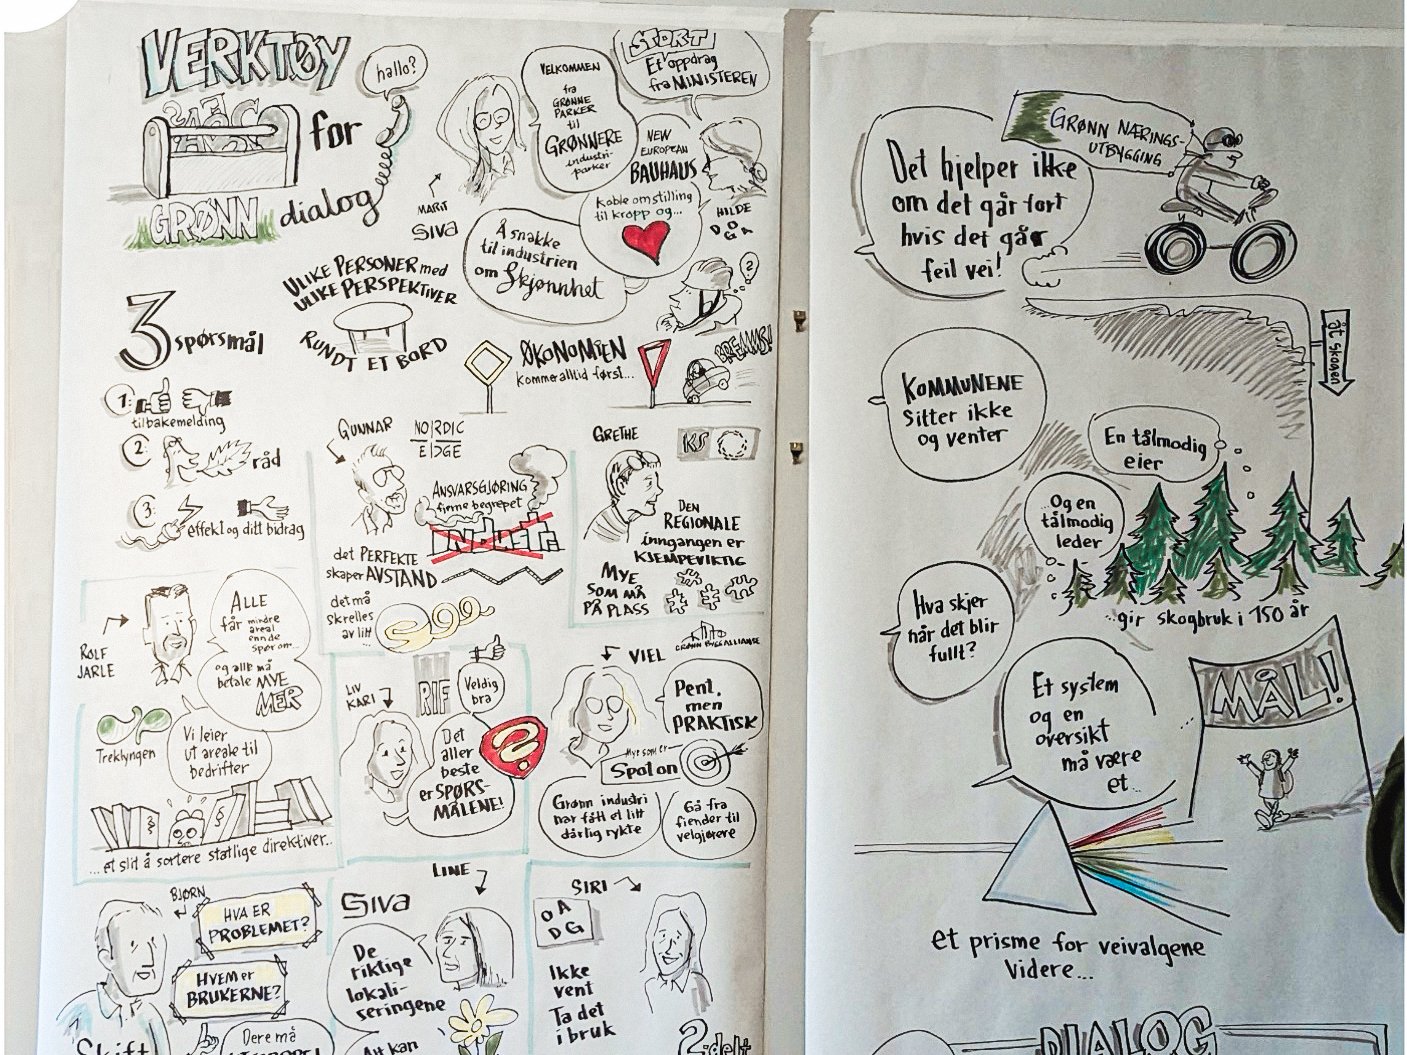 VERKTØY
for
GRØNN dialog
hallo?
MARIT
SIVA
VELKOMMEN
fra
GRØNNE
PARKER
til
GRØNNERE
industri-
parker
STORT
Et oppdrag
fra MINISTEREN
NEW
EUROPEAN
BAUHAUS
Koble omstilling
til kropp og...
HILDE
DOGA
Å snakke
til industrien
om Skjønnhet
ULIKE PERSONER med
ULIKE PERSPEKTIVER
RUNDT ET BORD
3 spørsmål
1:
tilbakemelding
2:
råd
3:
effekt og ditt bidrag
ØKONOMIEN
kommer alltid først...
2
GUNNAR
NORDIC
EDGE
ANSVARSGJØRING
finne begrepet
industri
det PERFEKTE
skaper AVSTAND
det må
skrelles
av litt
GRETHE
KS
DEN
REGIONALE
inngangen er
KJEMPEVIKTIG
MYE
SOM MÅ
PÅ PLASS
ROLF
JARLE
ALLE
får mindre
areal
enn de
spør om...
og alle må
betale MYE
MER
Treklyngen
Vi leier
ut areale til
bedrifter
...et slit å sortere statlige direktiver...
LIV
KARI
RIF
Veldig
bra
Det
aller
beste
er SPØRS-
MÅLENE!
?
VIEL
GRØNN BYGGALLIANSE
Pent,
men
PRAKTISK
Mye som er
Spot on
Grønn industri
har fått et litt
dårlig rykte
Gå fra
fiender til
velgjørere
BJØRN
HVA ER
PROBLEMET?
HVEM er
BRUKERNE?
Dere må
Skift
LINE
Siva
De
riktige
lokali-
seringene
Att kan
SIRI
DOGA
Ikke
vent
Ta det
i bruk
2-delt
GRØNN NÆRINGS-
UTBYGGING
Det hjelper ikke
om det går fort
hvis det går
feil vei!
KOMMUNENE
Sitter ikke
og venter
åt skogen
En tålmodig
eier
Og en
tålmodig
leder
...gir skogbruk i 150 år
Hva skjer
når det blir
fullt?
Et system
og en
oversikt
må være
et...
MÅL!
et prisme for veivalgene
videre...
DIALOG